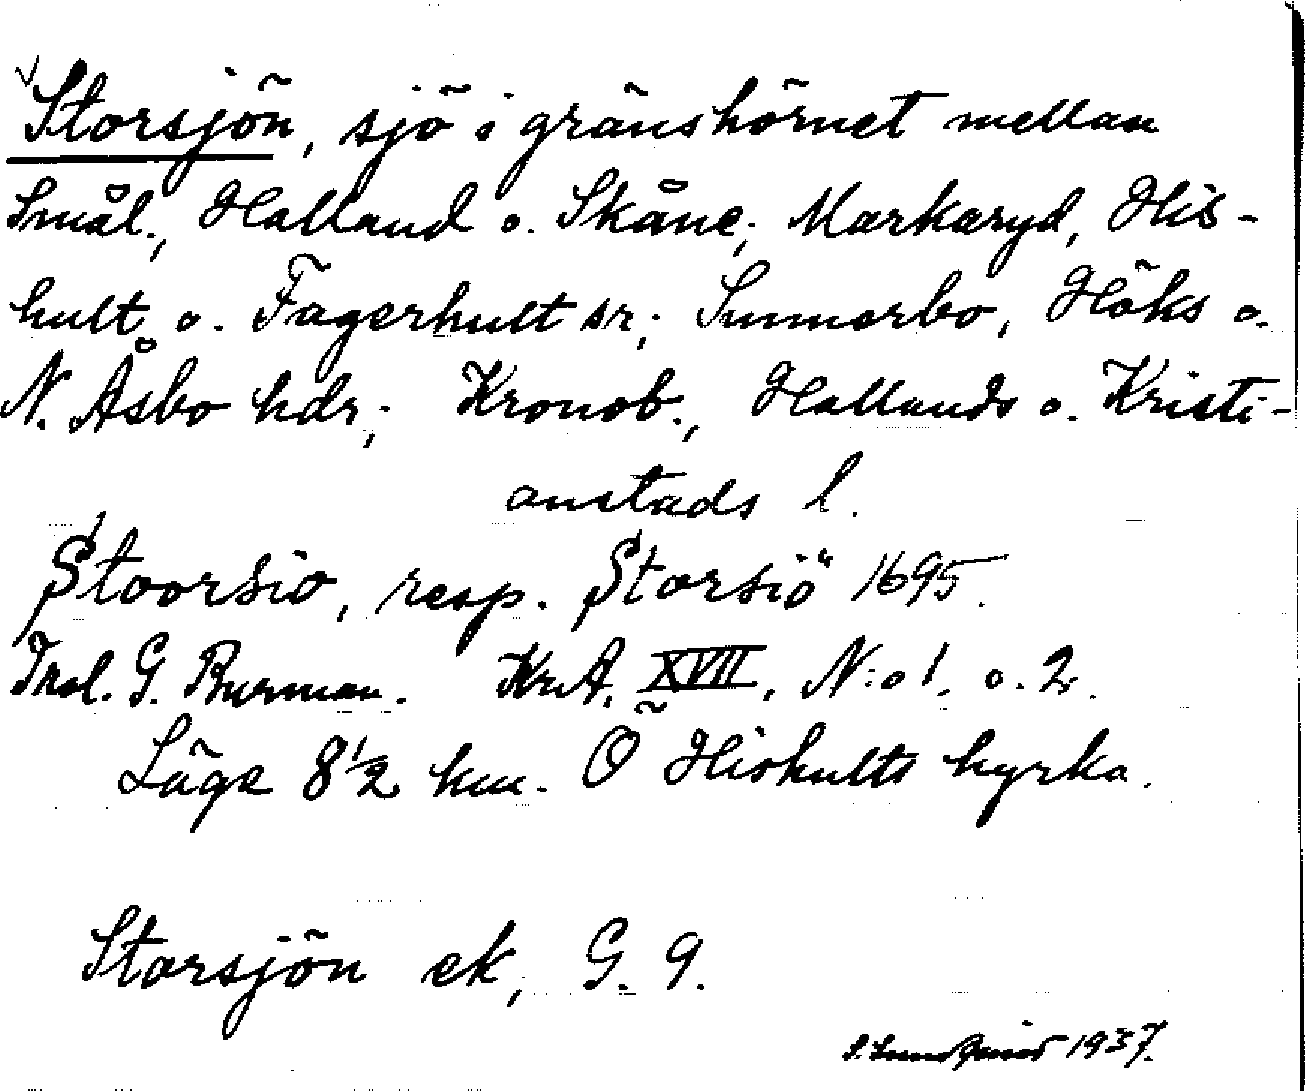 Storsjön, sjö i gränshörnet mellan
Smål., Halland o. Skåne; Markaryd, His-
hult o. Fagerhult sr; Sunnerbo, Höks o.
N. Åsbo hdr; Kronob., Hallands o. Kristi-
anstads l.
Stoorsio, resp. Storsiö 1695.
G. Burman. KrA. XVII, N:o 1. o. 2.
Läge 8 1/2 km. Ö Hishults kyrka.
Storsjön ek, G. 9.
1937.